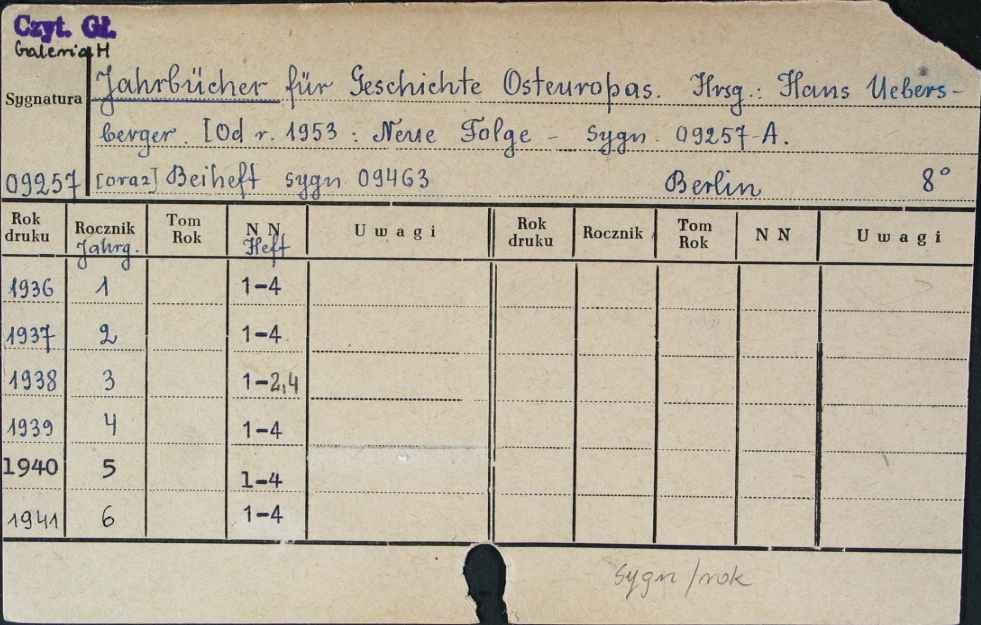 Czyt. Gł.
Galeria H
Sygnatura
Jahrbücher für Geschichte Osteuropas. Hrsg.: Hans Uebers-
berger. [Od r. 1953 : Neue Folge - sygn. 09257-A.
09257 [oraz] Beiheft sygn 09463 Berlin 8°
Rok druku Rocznik Jahrg. Tom Rok N N Heft Uwagi Rok druku Rocznik Tom Rok N N Uwagi
1936 1 1-4
1937 2 1-4
1938 3 1-2,4
1939 4 1-4
1940 5 1-4
1941 6 1-4
sygn/rok